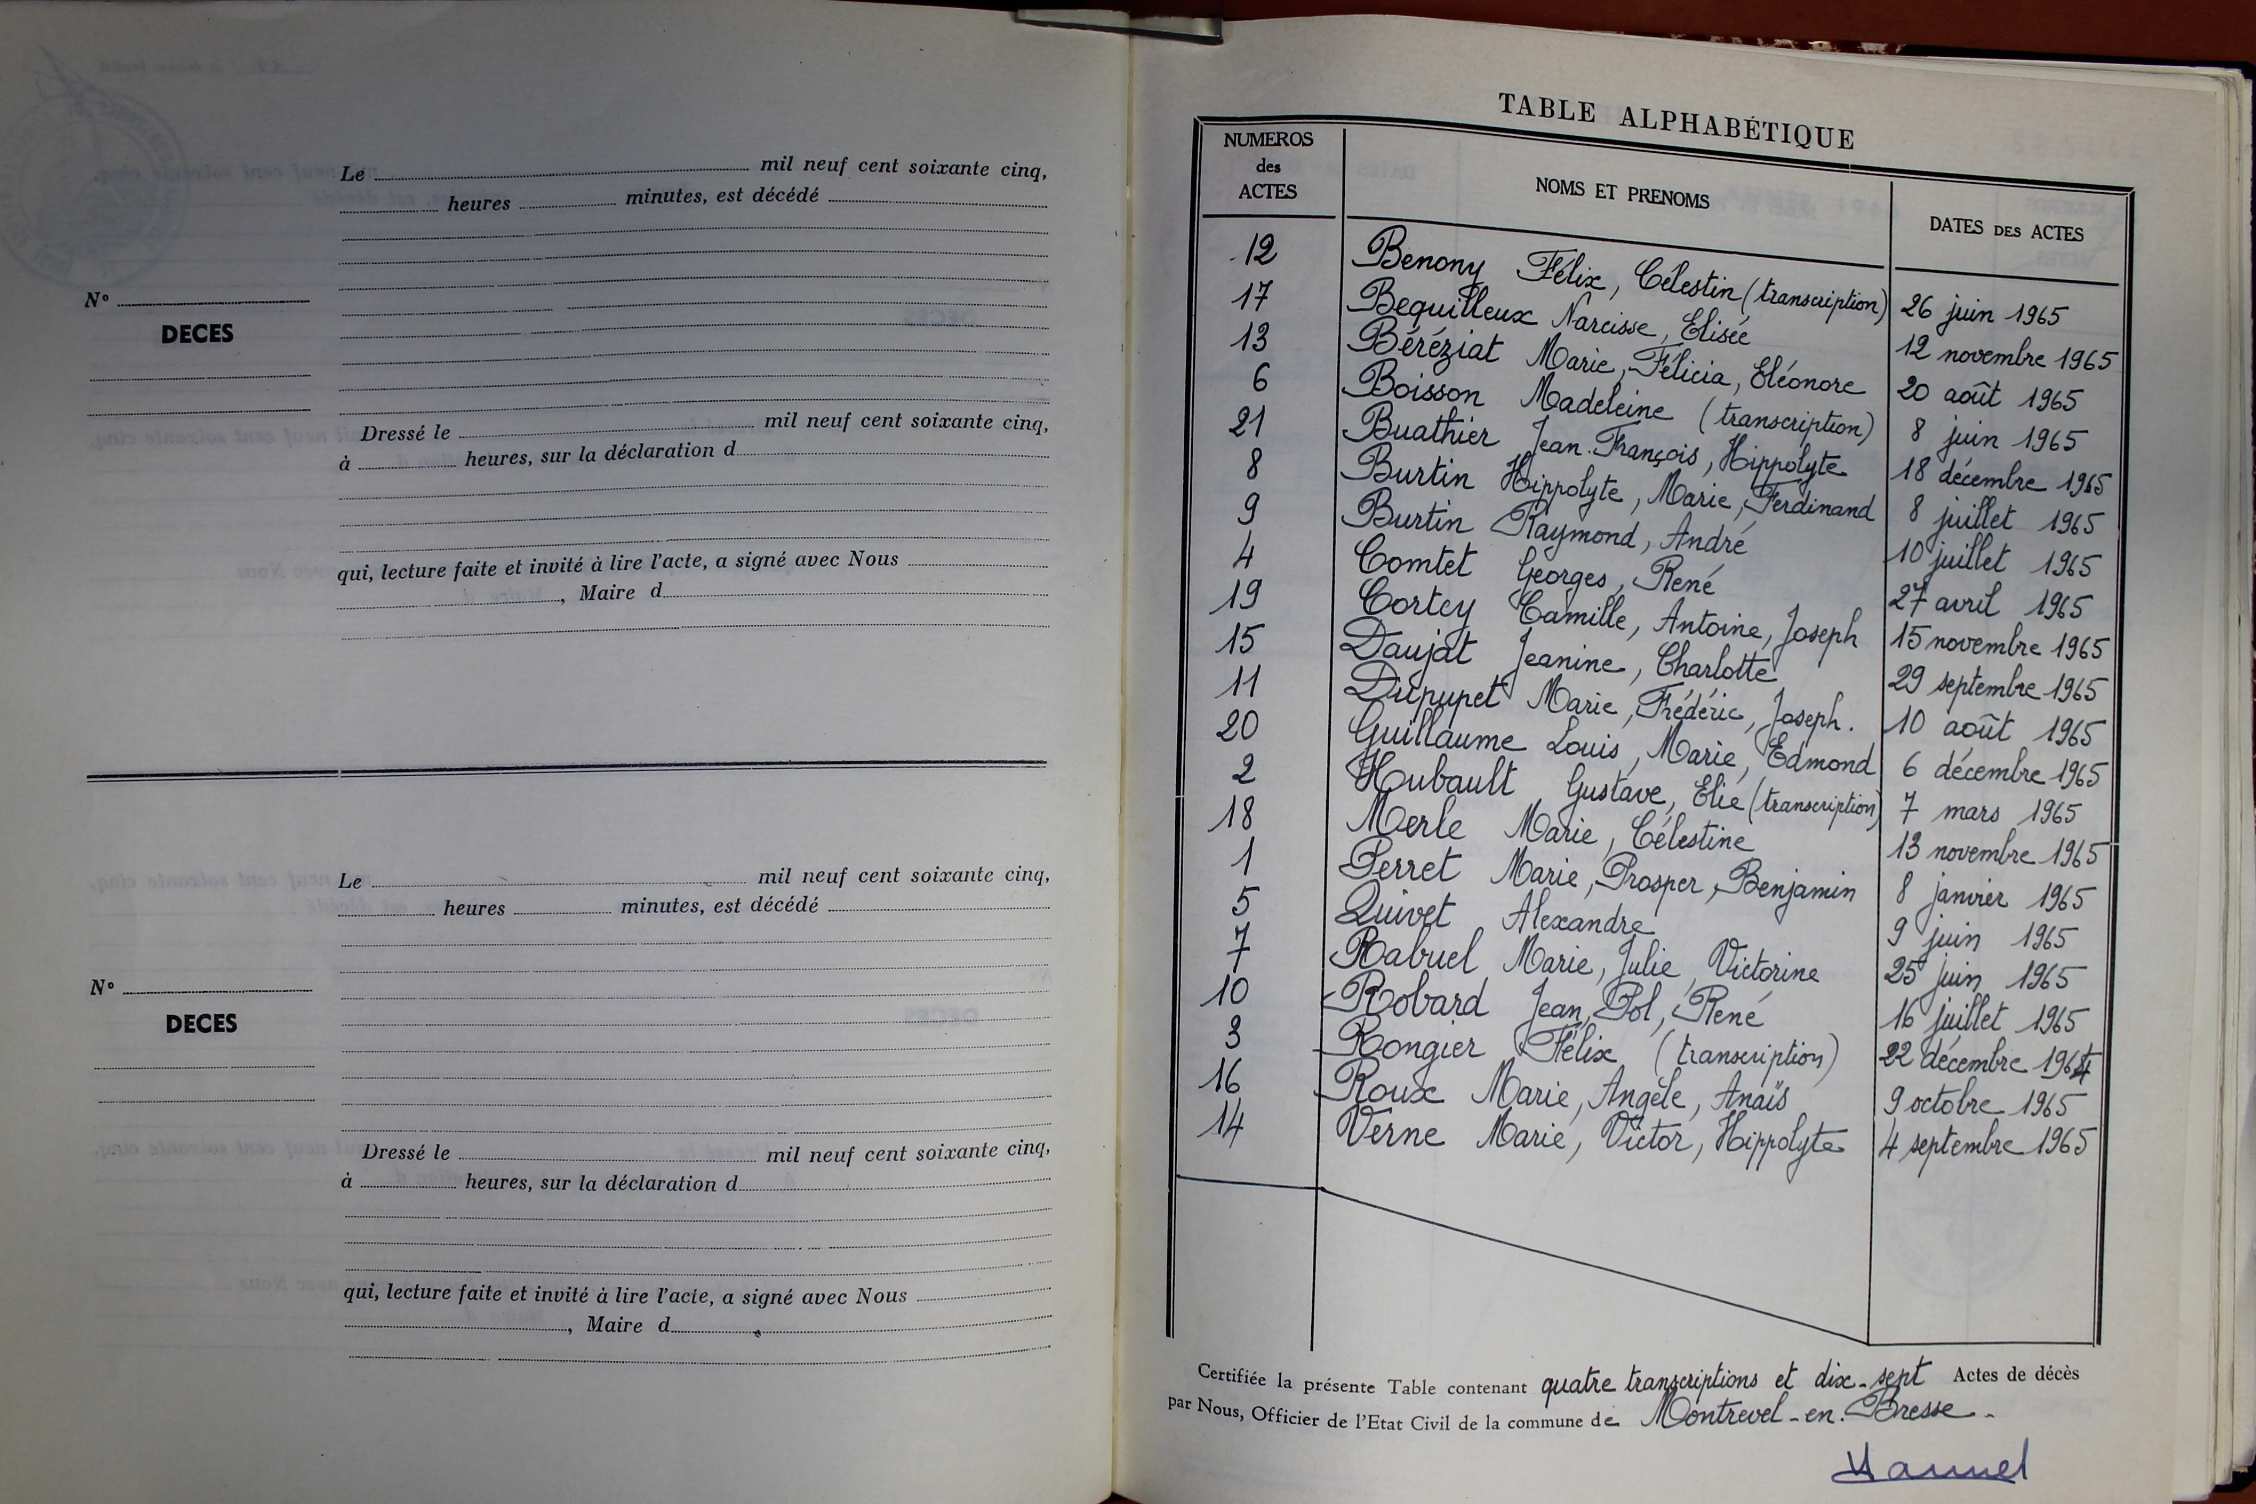 Le mil neuf cent soixante cinq,
heures minutes, est décédé
N°
DECES
Dressé le mil neuf cent soixante cinq,
à heures, sur la déclaration d
qui, lecture faite et invité à lire l'acte, a signé avec Nous
, Maire d
Le mil neuf cent soixante cinq,
heures minutes, est décédé
N°
DECES
Dressé le mil neuf cent soixante cinq,
à heures, sur la déclaration d
qui, lecture faite et invité à lire l'acte, a signé avec Nous
, Maire d
TABLE ALPHABÉTIQUE
NUMEROS des ACTES NOMS ET PRENOMS DATES DES ACTES
12 Benony Félix, Célestin (transcription) 26 juin 1965
17 Bequilleux Narcisse, Elisée 12 novembre 1965
13 Béréziat Marie, Félicia, Eléonore 20 août 1965
6 Boisson Madeleine (transcription) 8 juin 1965
21 Buathier Jean-François, Hippolyte 18 décembre 1965
8 Burtin Hippolyte, Marie, Ferdinand 8 juillet 1965
9 Burtin Raymond, André 10 juillet 1965
4 Comtet Georges, René 27 avril 1965
19 Cortey Camille, Antoine, Joseph 15 novembre 1965
15 Daujat Jeanine, Charlotte 29 septembre 1965
11 Dupupet Marie, Frédéric, Joseph. 10 août 1965
20 Guillaume Louis, Marie, Edmond 6 décembre 1965
2 Houbault Gustave, Elie (transcription) 7 mars 1965
18 Merle Marie, Célestine 13 novembre 1965
1 Perret Marie, Prosper, Benjamin 8 janvier 1965
5 Quivet Alexandre 9 juin 1965
7 Rabuel Marie, Julie, Victorine 25 juin 1965
10 Robard Jean, Pol, René 16 juillet 1965
3 Rongier Félix (transcription) 22 décembre 1964
16 Roux Marie, Angèle, Anaïs 9 octobre 1965
14 Verne Marie, Victor, Hippolyte 4 septembre 1965
Certifiée la présente Table contenant quatre transcriptions et dix-sept Actes de décès
par Nous, Officier de l'Etat Civil de la commune de Montrevel-en-Bresse-